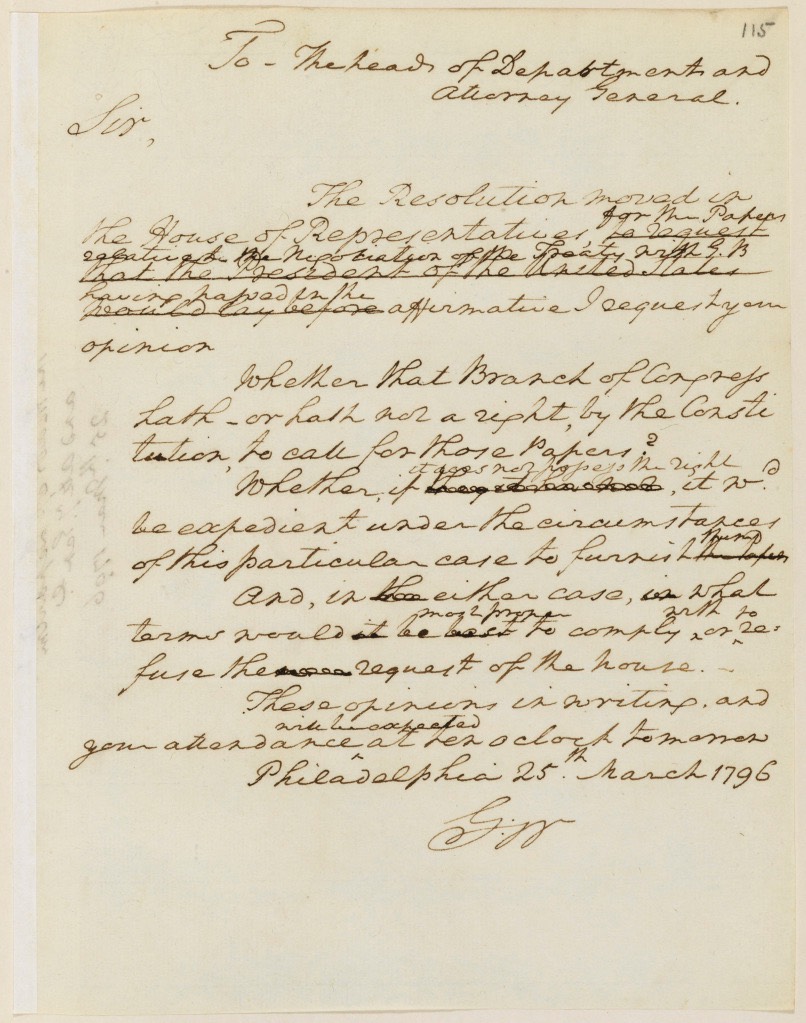 115
To – The heads of Departments and
Attorney General.
Sir,
The Resolution moved in
for the Papers
the House of Representatives, a request
relative to the Negotiation of the Treaty with G. B
that the President of the United States
having passed in the
would lay before affirmative I request your
opinion
Whether that Branch of Congress
hath – or hath not a right, by the Consti
tution, to call for those Papers?
it does not possess the right
Whether, if, it w.d
be expedient under the circumstances
of this particular case to furnish
them?
the Papers
And, in the either case, in what
most proper with to
terms would it be best to comply, or re:
fuse the request of the house. –
These opinions in writing, and
will be expected
your attendance at ten o clock tomorrow
Philadelphia 25.th March 1796
G: W